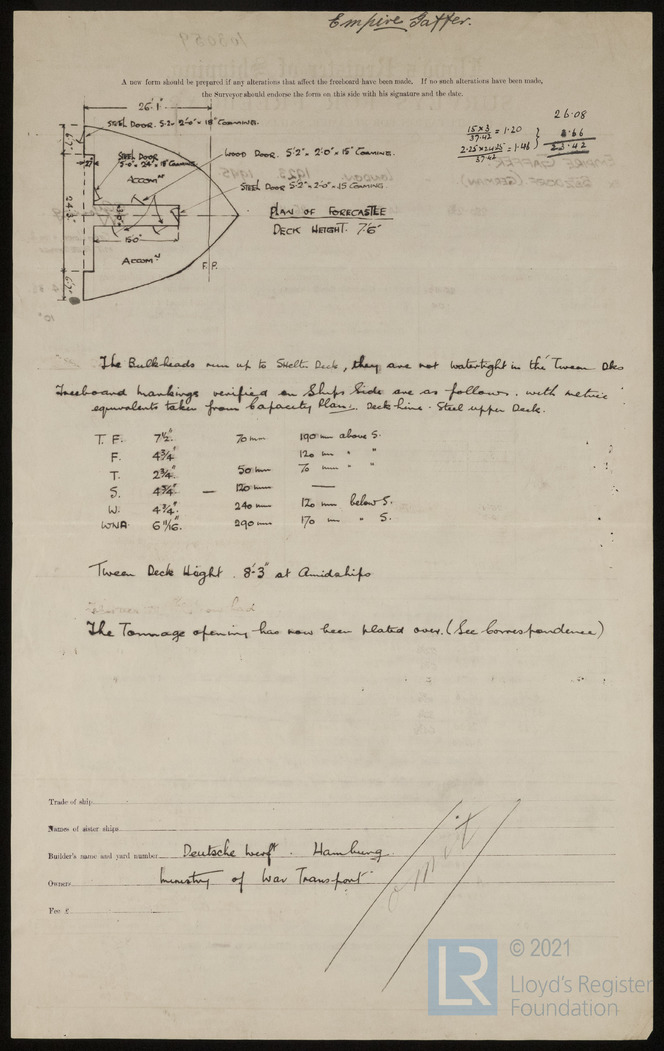 Empire Gaffer.
A new form should be prepared if any alterations that affect the freeboard have been made. If no such alterations have been made,
the Surveyor should endorse the form on this side with his signature and the date.
26'.1"
STEEL DOOR. 5'.2"× 2'-0"× 18" COAMING.
STEEL DOOR
WOOD DOOR. 5'.2"× 2'.0"× 15" COAMING.
STEEL DOOR 5'.2"× 2'-0"× 15 COAMING.
ACCOMN
15'0"
24'3"
ACCOMN
F.P.
PLAN OF FORECASTLE
DECK HEIGHT. 7'6"
15 × 3 / 37.42 = 1.20
2.25 × 24.25 / 37.42 = 1.46
26.08
23.42
The Bulkheads run up to Shelter Deck, they are not watertight in the 'Tween Dks
Freeboard markings verified on Ships Side are as follows. with metric
equivalents taken from Capacity Plan. Deck line. Steel upper Deck.
T. F. 7½". 70 mm 190 mm above S.
F. 4¾" 120 mm " "
T. 2¾" 50 mm 70 mm " "
S. 4¾". — 120 mm —
W. 4¾" 240 mm 120 mm below S.
WNA. 6 11/16". 290 mm 170 mm " S.
Tween Deck Height. 8'-3" at Amidships
The Tonnage opening has now been plated over. (See Correspondence)
Trade of ship
Names of sister ships
Builder's name and yard number Deutsche Werft. Hamburg.
Owners Ministry of War Transport
Fee £
omit
LR
© 2021
Lloyd's Register
Foundation